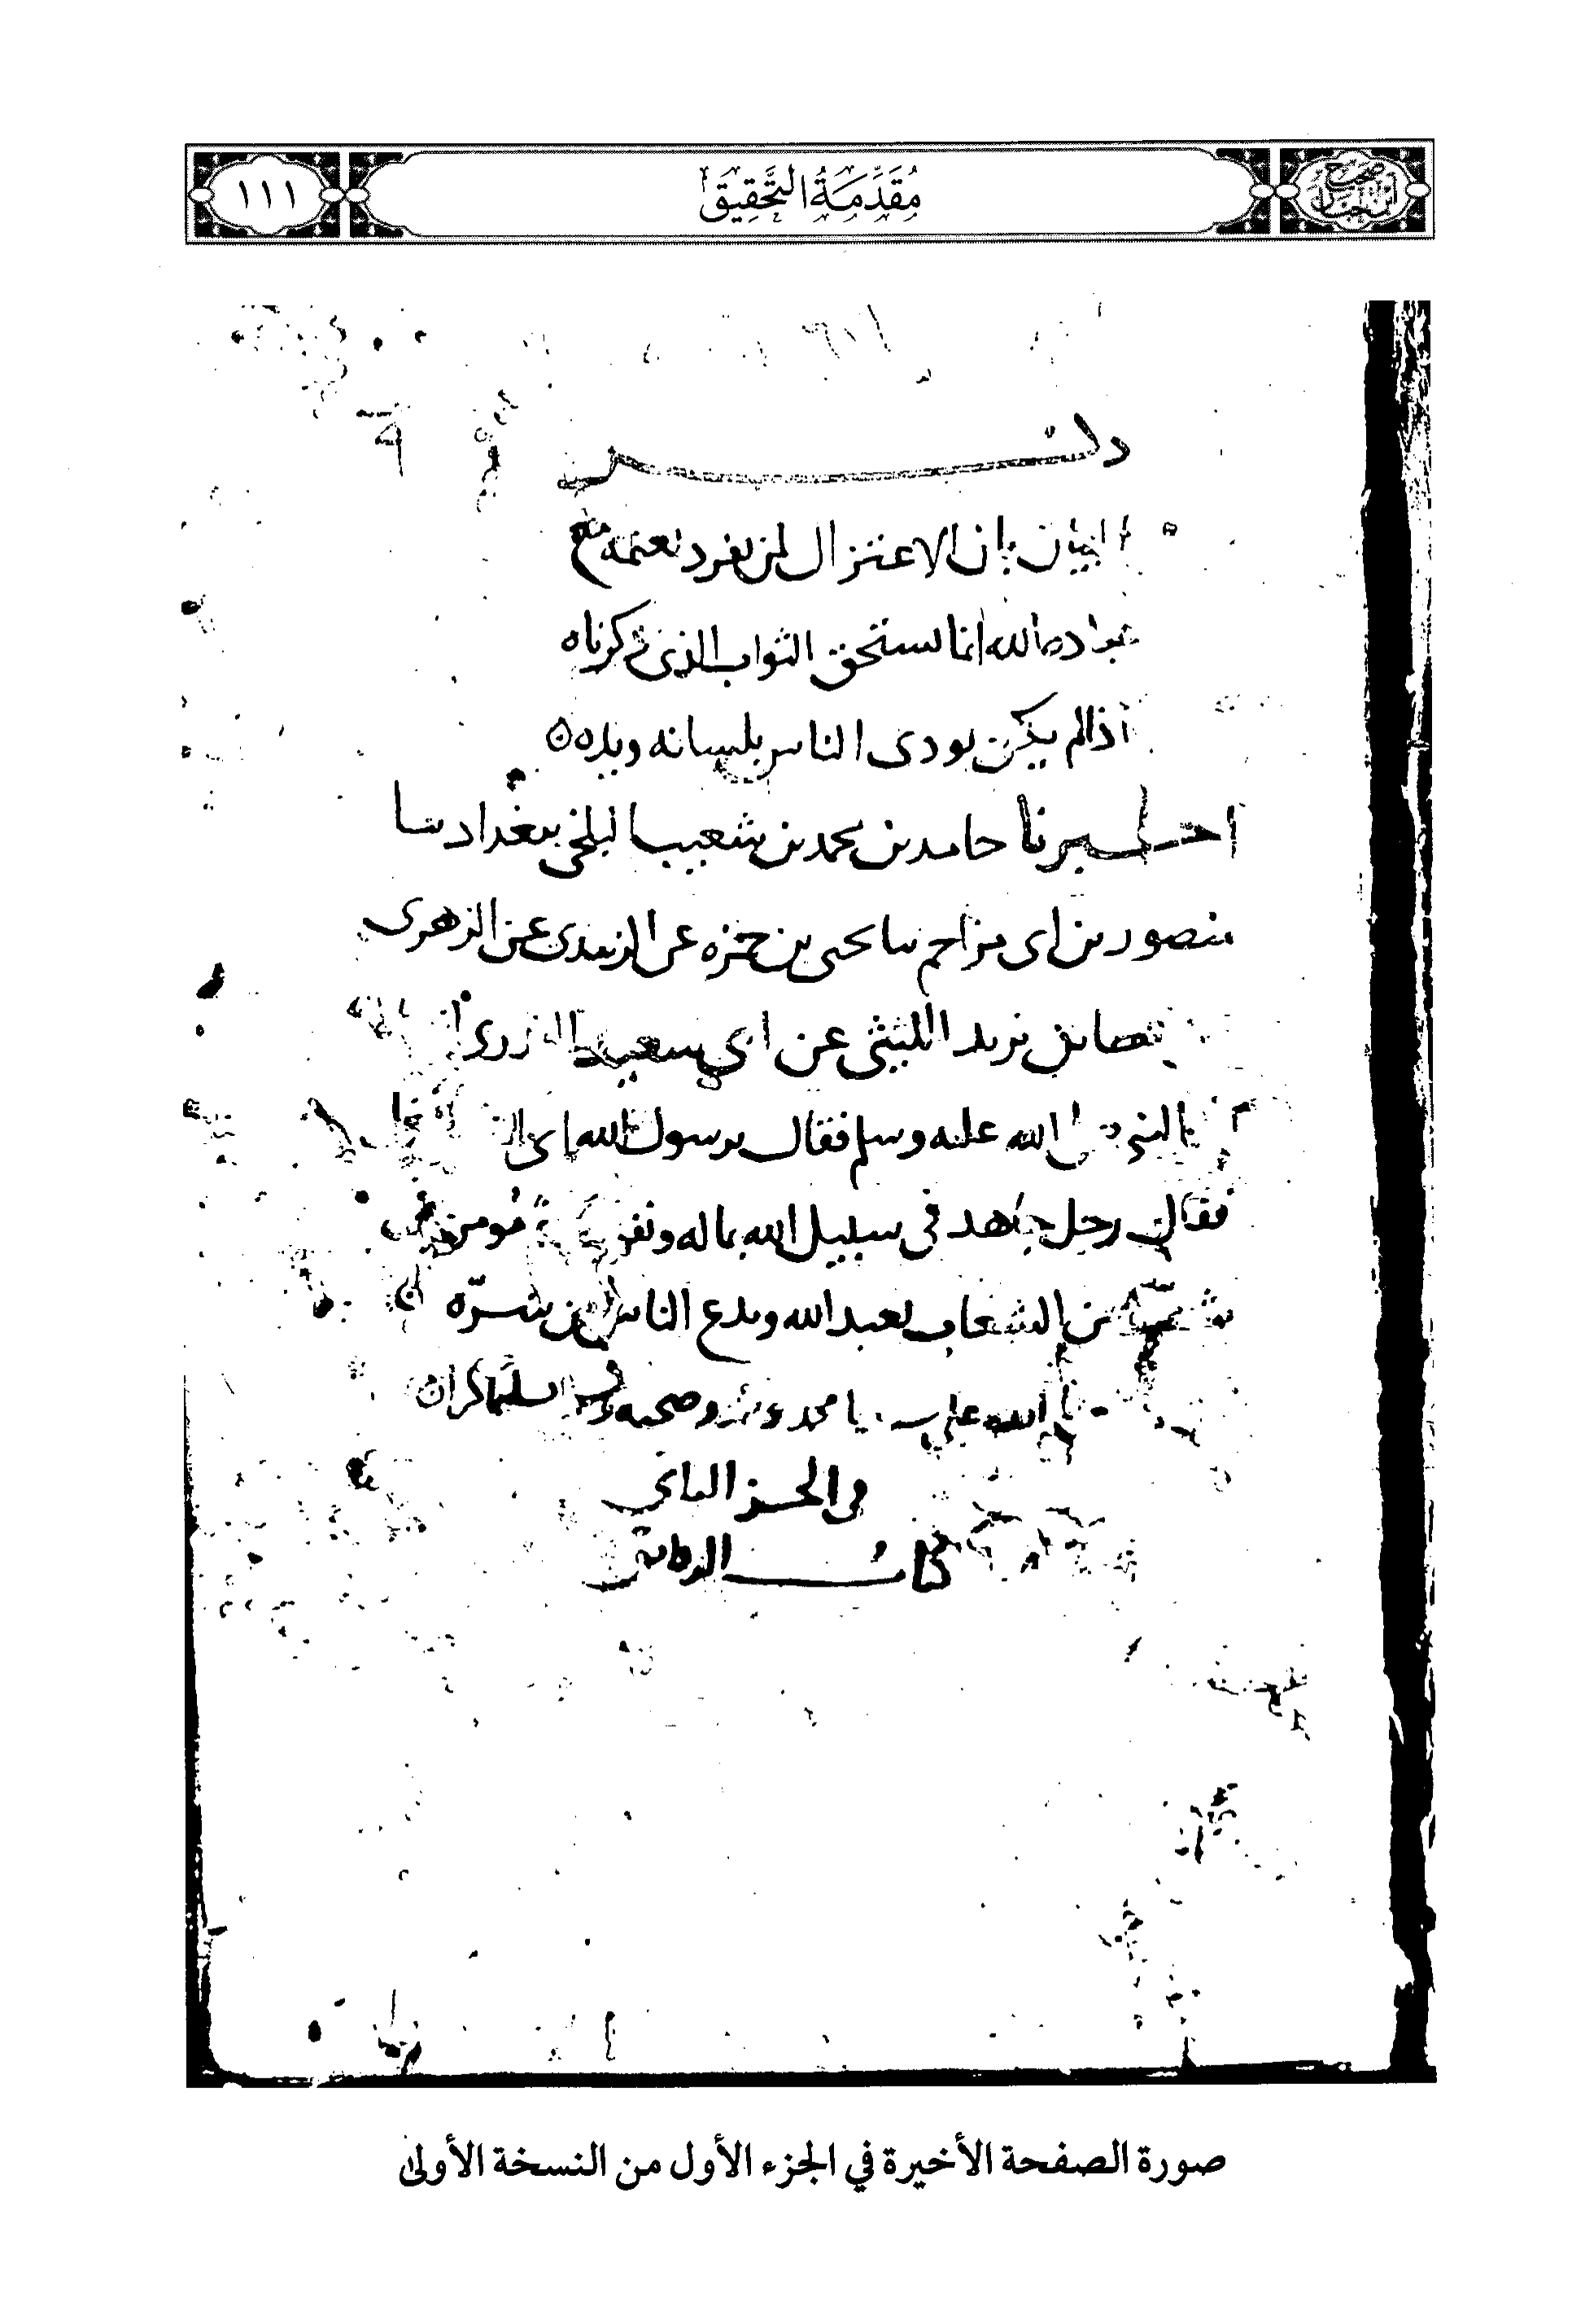 صحيح ابن حبان
مُقَدِّمَةُ التَّحْقِيق
١١١
ذكر
البيان بان الاعتزال لمن تفرد بغنمه مع
عبادة الله انما يستحق الثواب الذي ذكرناه
اذا لم يكن يوذى الناس بلسانه ويده
اخبرنا حامد بن محمد بن شعيب البلخي ببغداد ثنا
منصور بن ابي مزاحم ثنا يحيى بن حمزه عن الزبيدي عن الزهرى
عطا بن يزيد الليثي عن ابي سعيد
النبي صلى الله عليه وسلم فقال يرسول الله اى
فقال رجل جاهد فى سبيل الله بماله ونفسه مومن فى
شعب من الشعاب يعبد الله ويدع الناس من شره
الله على محمد وصحبه وسلم
فى الجز الثاني
كتاب الرقائق
صورة الصفحة الأخيرة في الجزء الأول من النسخة الأولى